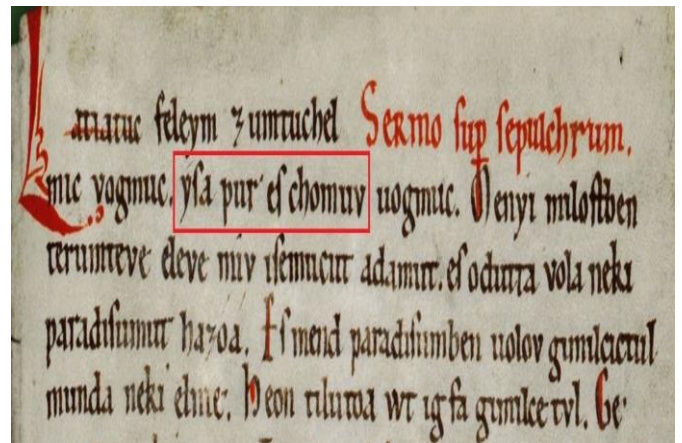 Latiatuc feleym zumtuchel Sermo sup sepulchrum.
mic vogmuc. ysa pur es chomuv uogmuc. Menyi milostben
terumteve eleve miv isemucut adamut. es odutta vola neki
paradisumut hazoa. Es mend paradisumben uolov gimilcictul
munda neki elnie. Heon tilutoa wt ig fa gimilce tvl. Ge